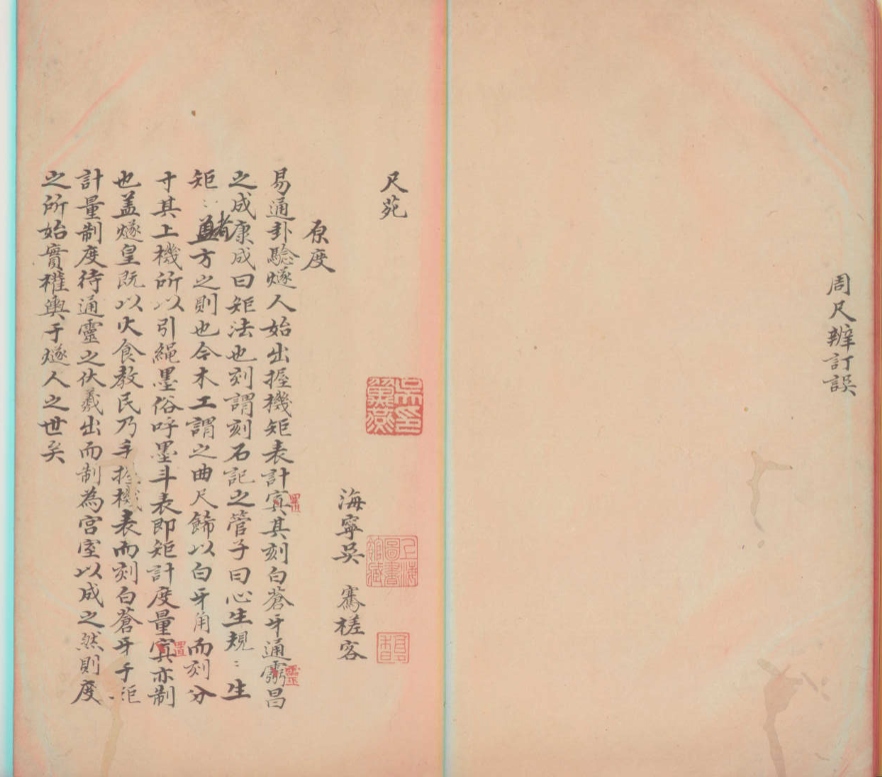 周尺辨訂誤
尺苑
海寧吳騫槎客
原度
易通卦驗燧人始出握機矩表計寘其刻白蒼牙通靈昌
之成康成曰矩法也刻謂刻石記之管子曰心生規〻生
矩〻者方之則也今木工謂之曲尺飾以白牙角而刻分
寸其上機所以引繩墨俗呼墨斗表即矩計度量寘亦制
也盖燧皇既以火食教民乃手握機表而刻白蒼牙于矩
計量制度待通靈之伏羲出而制為宮室以成之然則度
之所始實權輿于燧人之世矣
上海圖書館藏